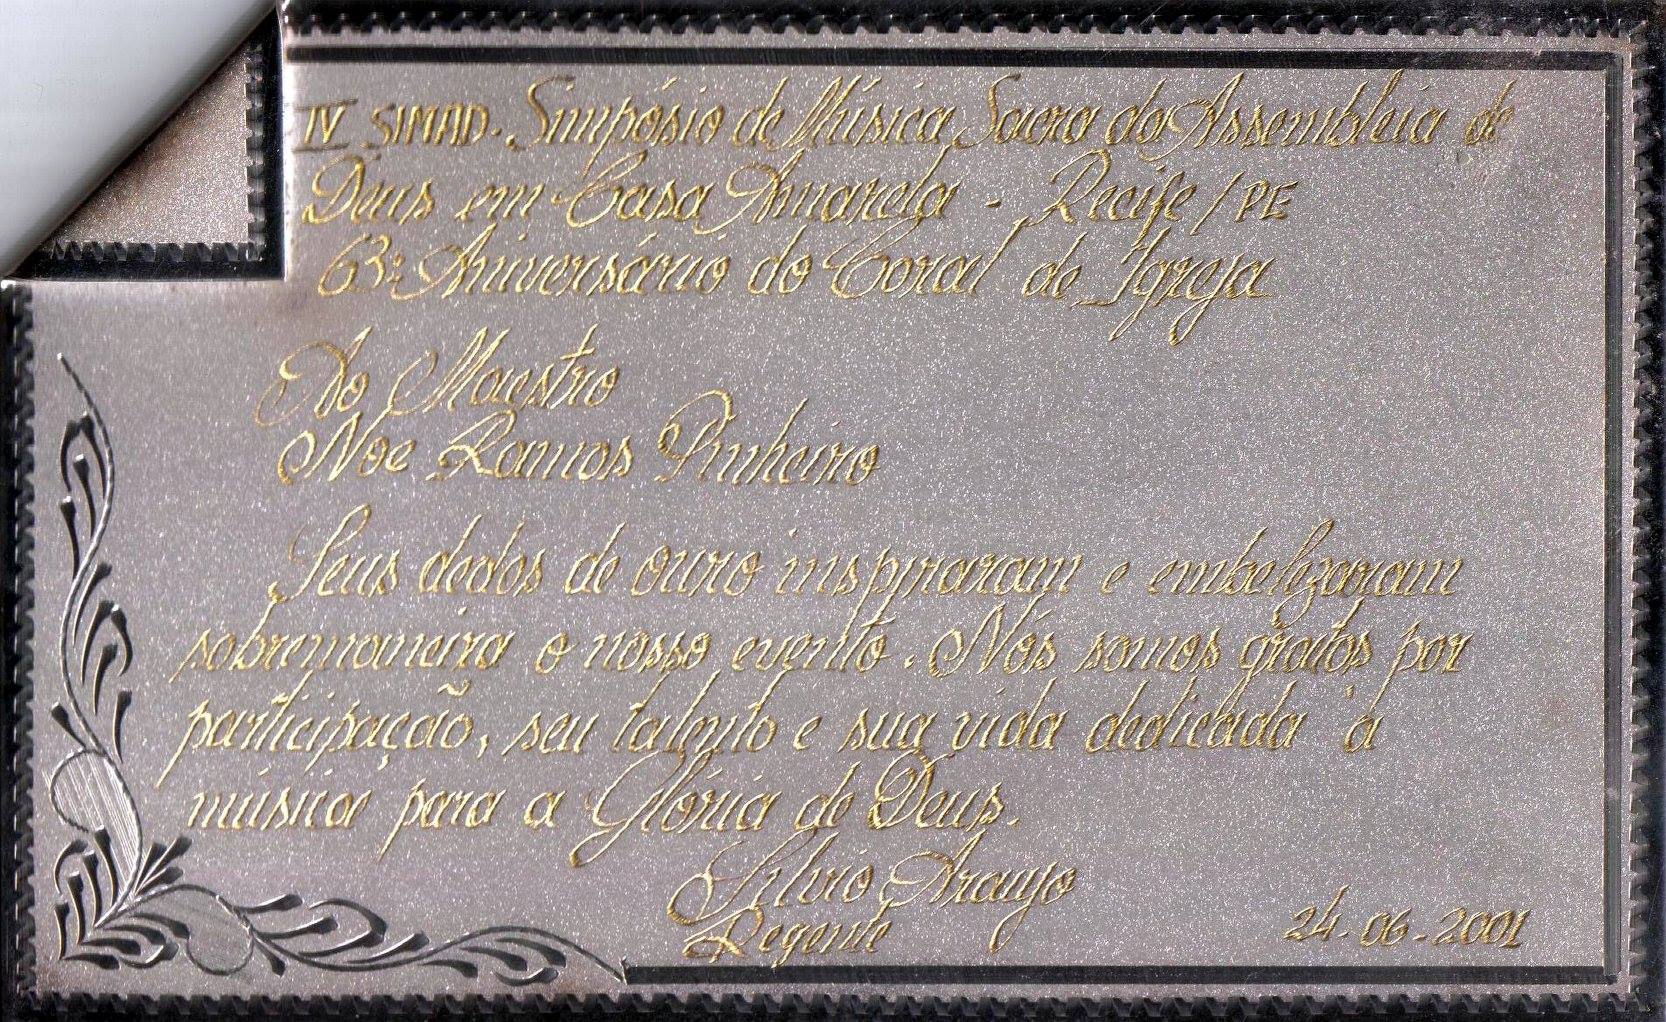 IV SIMAD. Simpósio de Música Sacra da Assembleia de
Deus em Casa Amarela - Recife/PE
63º Aniversário do Coral de Igreja
Ao Maestro
Noe Ramos Pinheiro
Seus dedos de ouro inspiraram e embelezaram
sobremaneira o nosso evento. Nós somos gratos por
participação, seu talento e sua vida dedicada à
música para a Glória de Deus.
Silvio Araujo
Regente
24-06-2001